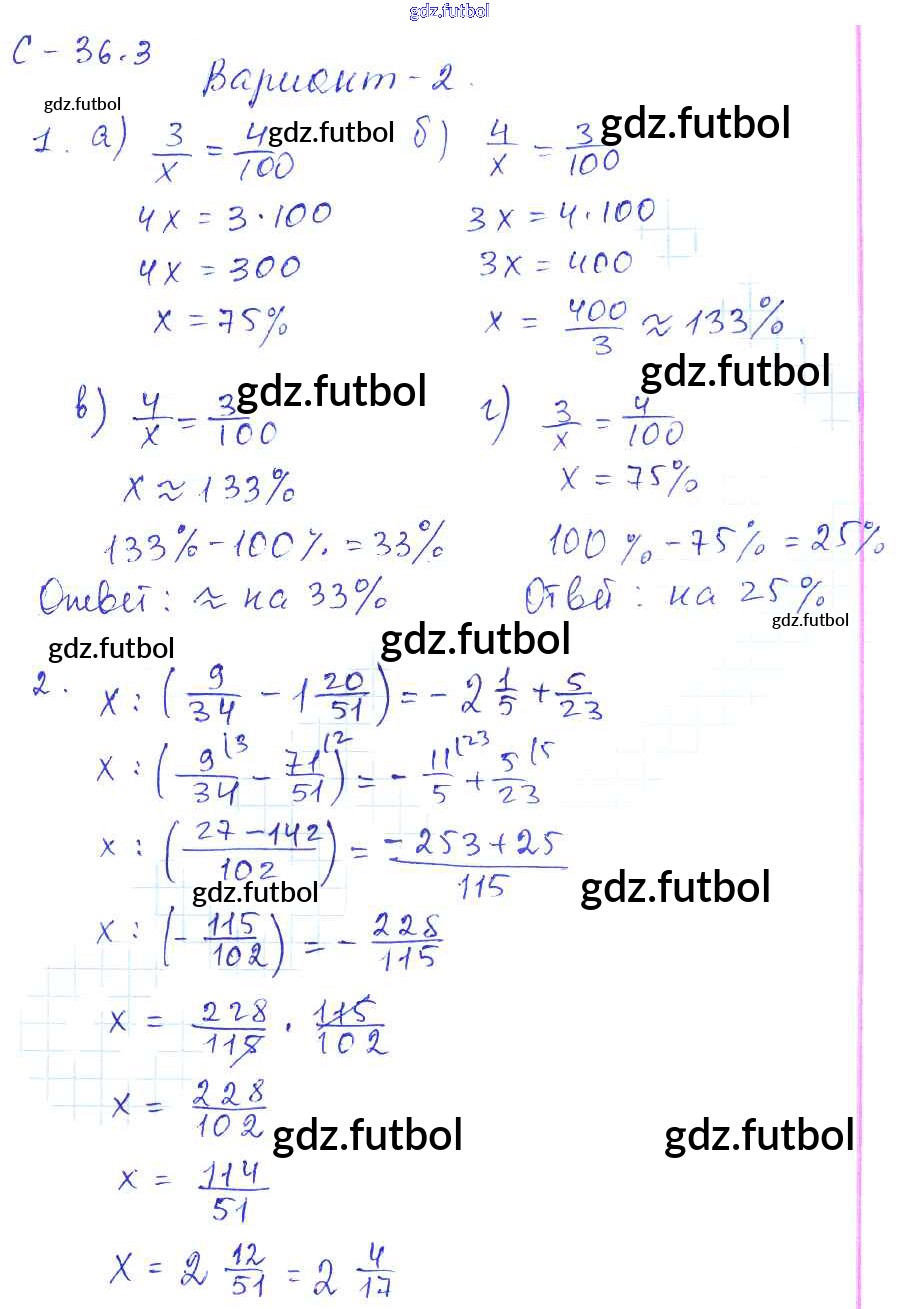 gdz.futbol
С - 36.3
Вариант - 2.
gdz.futbol
1. а) 3/x = 4/100 gdz.futbol б) 4/x = 3/100 gdz.futbol
4x = 3 · 100 3x = 4 · 100
4x = 300 3x = 400
x = 75% x = 400/3 ≈ 133%.
gdz.futbol gdz.futbol
в) 4/x = 3/100 г) 3/x = 4/100
x ≈ 133% x = 75%
133% - 100% = 33% 100% - 75% = 25%
Ответ: ≈ на 33% Ответ: на 25%
gdz.futbol gdz.futbol gdz.futbol
2. x : (9/34 - 1 20/51) = - 2 1/5 + 5/23
x : (9/34 (3 - 71/51 (2) = - 11/5 (23 + 5/23 (5
x : (27 - 142/102) = -253 + 25/115
gdz.futbol gdz.futbol
x : (- 115/102) = - 228/115
x = 228/115 · 115/102
x = 228/102
gdz.futbol gdz.futbol
x = 114/51
x = 2 12/51 = 2 4/17